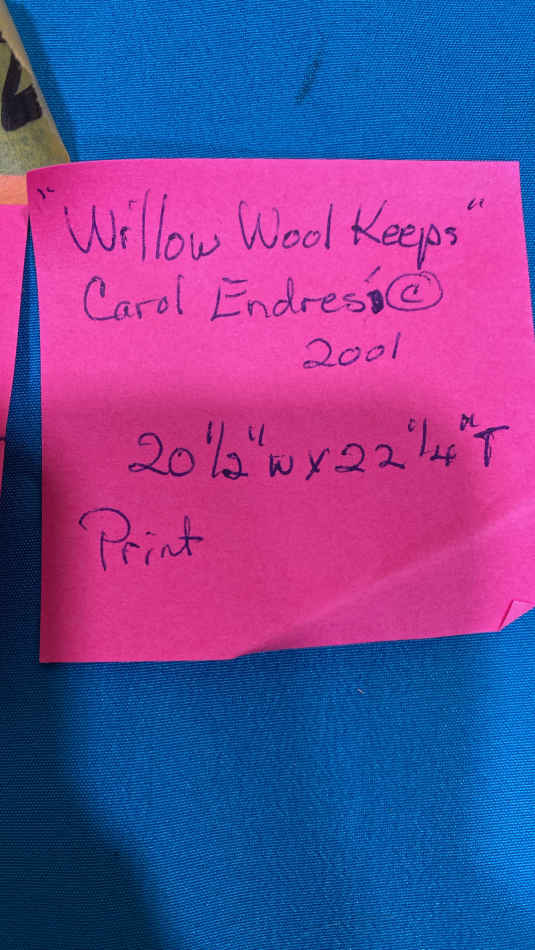 "Willow Wool Keeps"
Carol Endres' ©
2001
20 1/2" W X 22 1/4" T
Print